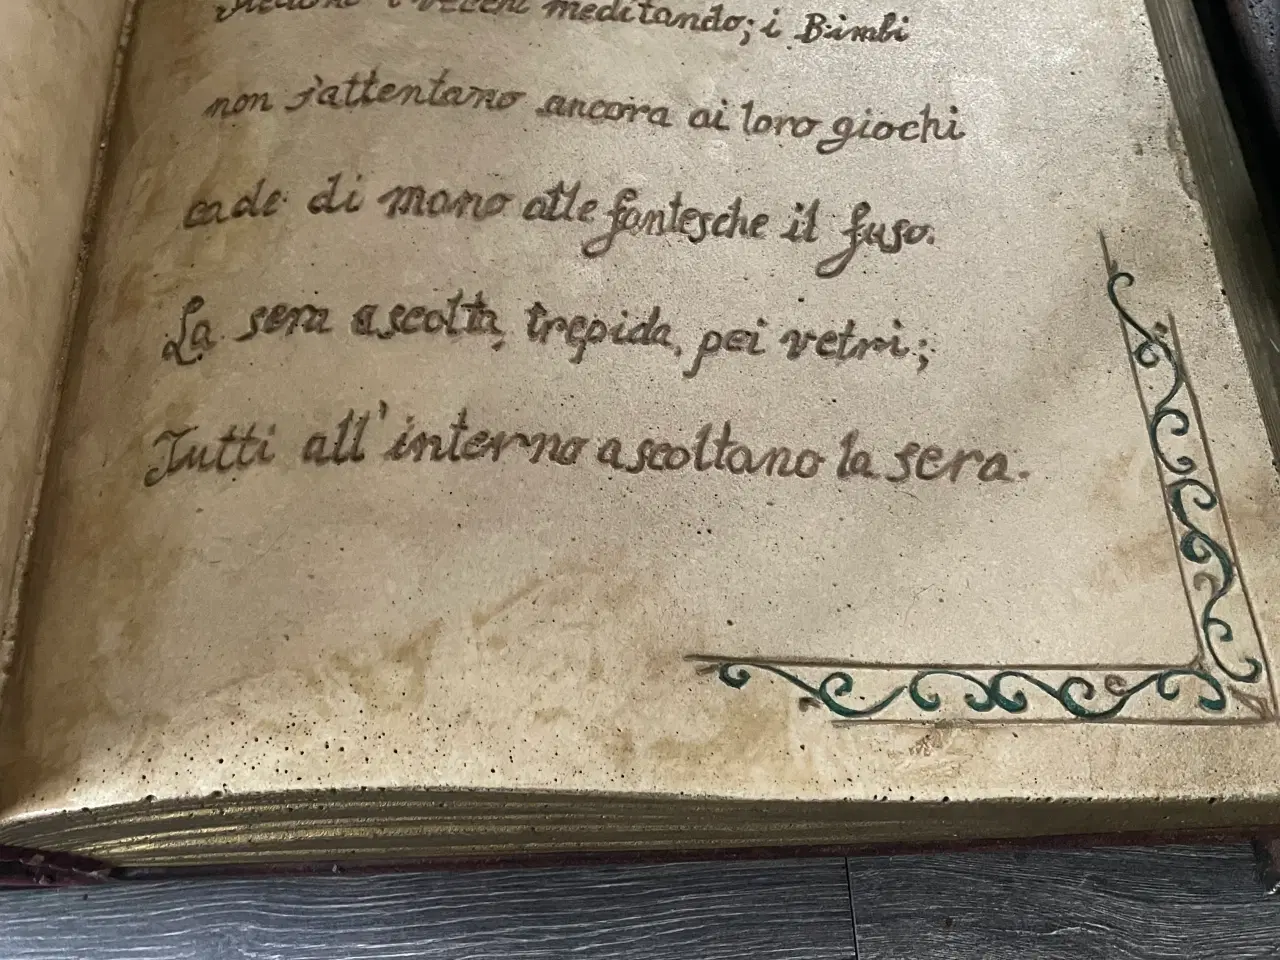 i vecchi meditando; i Bimbi
non s'attentano ancora ai loro giochi
cade di mano alle fantesche il fuso.
La sera ascolta, trepida, pei vetri;
Tutti all'interno ascoltano la sera.